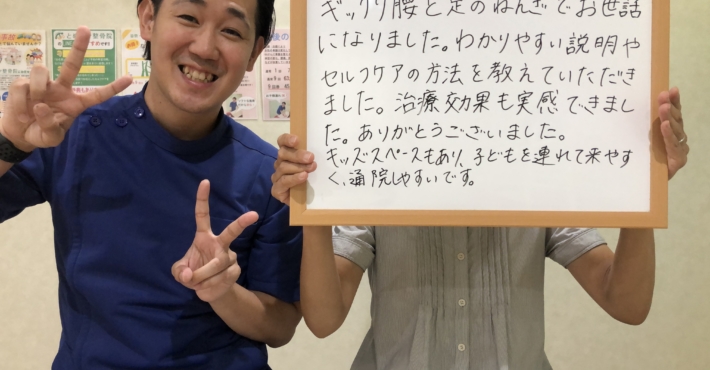 ギックリ腰と足のねんざでお世話
になりました。わかりやすい説明や
セルフケアの方法を教えていただき
ました。治療効果も実感できまし
た。ありがとうございました。
キッズスペースもあり、子どもを連れて来やす
く、通院しやすいです。